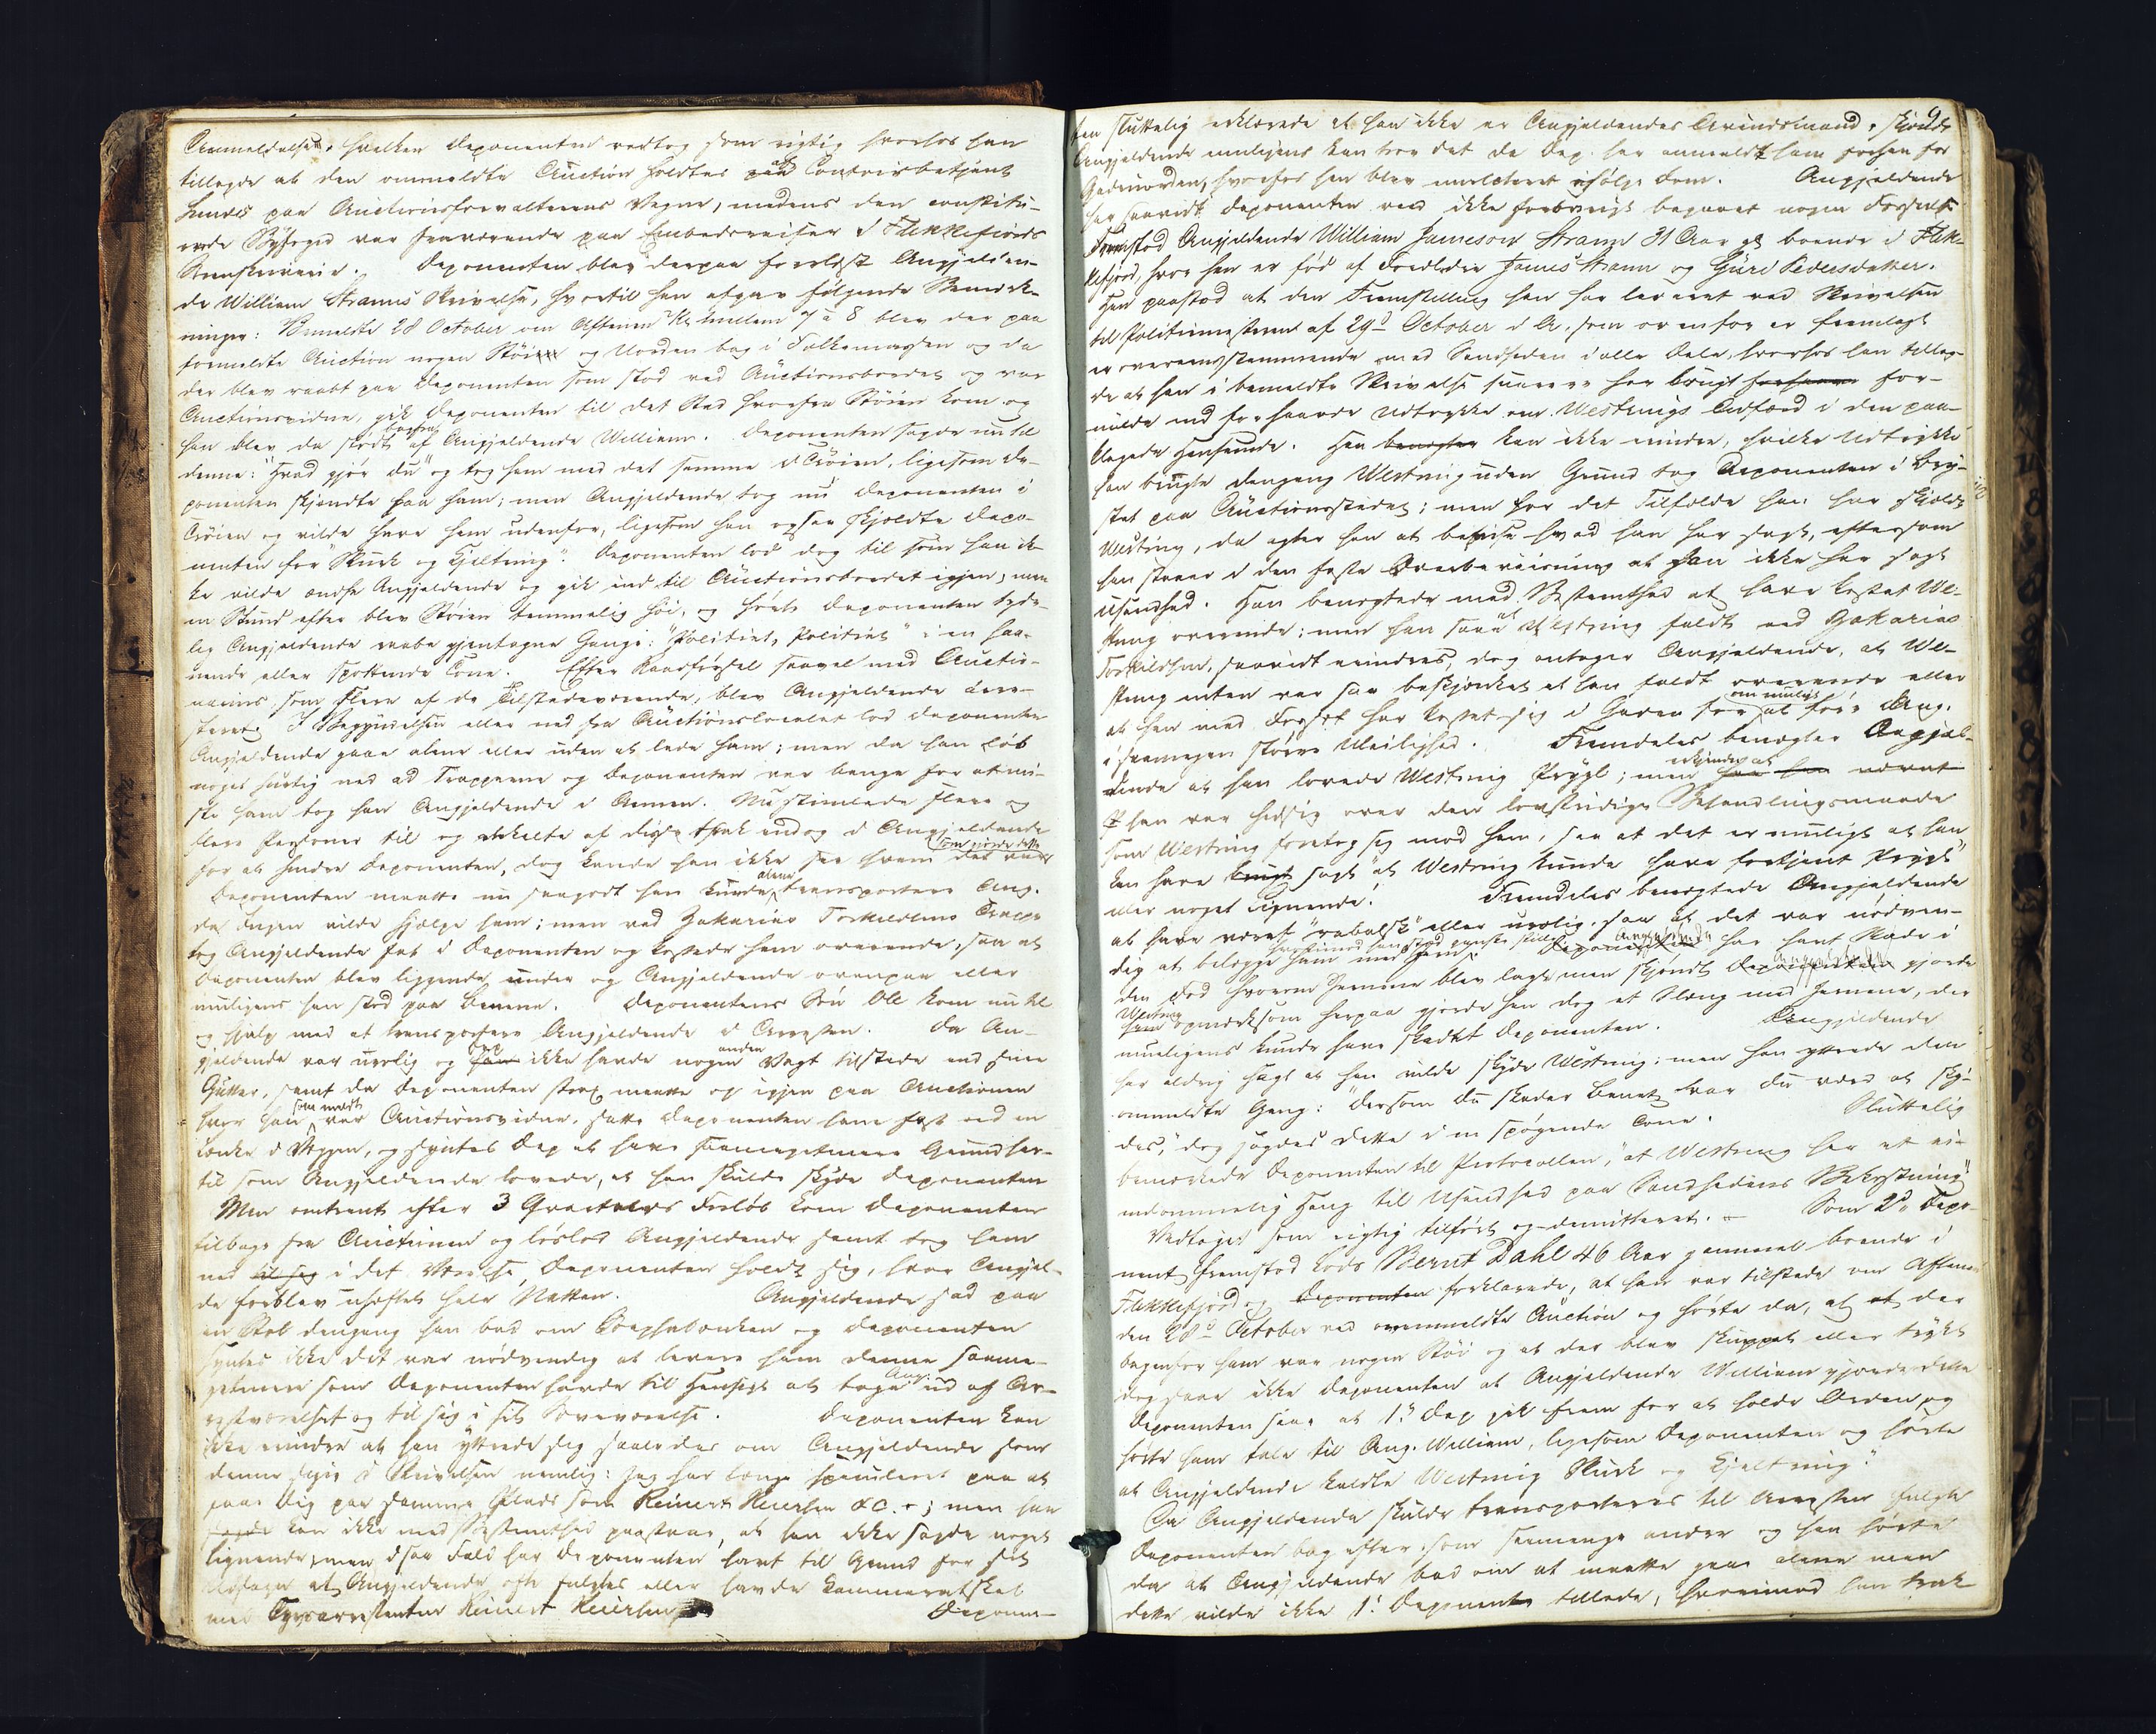 Anmeldelsen, hvilken Deponenten vedtog som rigtig hvorhos han
tillagde at den ommeldte Auction holdtes af Contoirbetjent
Lunds paa Auctionsforvalterens Vegne, medens den constitu-
erede Byfoged var fraværende paa Embedsreiser i Flekkefjords
Sorenskriveri. Deponenten blev derpaa forelæst Angjælden-
de William Stranns Skrivelse, hvortil han afgav følgende Bemærk-
ninger: Bemeldte 28 October om Aftenen Kl. mellem 7 à 8 blev der paa
formeldte Auction nogen Støi og Uorden bag i Folkemassen og da
der blev raabt paa Deponenten som stod ved Auctionsbordet og var
Auctionsvidne, gik Deponenten til det Sted hvorfra Støien kom og
han blev da stødt bagfra af Angjældende William. Deponenten sagde nu til
denne: "Hvad gjør du" og tog ham med det samme i Trøien, ligesom De-
ponenten skjændte paa ham; men Angjældende tog nu Deponenten i
Trøien og vilde have ham udenfor, ligesom han ogsaa skjældte Depo-
nenten for "Skurk og Kjeltring". Deponenten lod dog til som han ik-
ke vilde ændse Angjældende og gik ind til Auctionsbordet igjen; men
en Stund efter blev Støien temmelig høi, og hørte Deponenten tyde-
lig Angjældende raabe gjentagne Gange: "Politiet, Politiet" i en haa-
nende eller spottende Tone. Efter Raadførsel saavel med Auctio-
narius som Flere af de Tilstedeværende, blev Angjældende arre-
steret. I Begyndelsen eller ned fra Auctionslocalet lod Deponenten
Angjældende gaae alene eller uden at lede ham; men da han løb
noget hurtig ned ad Trapperne og Deponenten var bange for at mi-
ste ham tog han Angjældende i Armen. Nu stimlede flere og
flere Personer til og enkelte af disse trak endog i Angjældende
for at hindre Deponenten, dog kunde han ikke see hvem som gjorde dette
Deponenten maatte nu saagodt han kunde alene transportere Ang.
da Ingen vilde hjælpe ham; men ved Zakarias Torkildsens Trappe
tog Angjældende fat i Deponenten og kastede ham overende, saa at
Deponenten blev liggende under og Angjældende ovenpaa eller
muligens han stod paa Benene. Deponentens Søn Ole kom nu til
og hjalp med at transportere Angjældende i Arresten. Da An-
gjældende var urolig og Dep. ikke havde nogen anden Vagt tilstede end sine
Gutter, samt da Deponenten strax maatte op igjen paa Auctionen
hvor han som meldt var Auctionsvidne, satte Deponenten ham fast ved en
Lænke i Væggen, og syntes Dep at have saameget mere Grund her-
til som Angjældende lovede, at han skulde skyde Deponenten
Men omtrent efter 3 Qvarteers Forløb kom Deponenten
tilbage fra Auctionen og løslod Angjældende samt tog ham
ned i det Værelse, Deponenten holdt sig, hvor Angjæl-
de forblev uheftet hele Natten. Angjældende sad paa
en Stol dengang han bad om Træskebænken og Deponenten
syntes ikke det var nødvendig at levere ham denne saame-
get mere som Deponenten havde til Hensigt at tage Ang. ud af Ar-
restværelset og til sig i sit Soveværelse. Deponenten kan
ikke mindes at han yttrede sig saaledes om Angjældende som
denne siger i Skrivelsen nemlig: Jeg har længe spenderet paa at
faae dig paa samme Plads som Reinert Reiersen &c.; men han
kan ikke med Bestemthed paastaae, at han ikke sagde noget
lignende, men i saa Fald har Deponenten havt til Grund for sit
Udsagn at Angjældende ofte fulgtes eller havde Kammeratskab
med Tyvsarrestanten Reinert Reiersen Deponen-
9
ten sluttelig erklærede at han ikke er Angjældendes Avindsmand, skjøndt
Angjældende muligens kan troe det da Dep. har anmeldt ham forhen for
Gadeuorden, hvorfor han blev mulcteret ifølge Dom. Angjældende
har saavidt Deponenten ved ikke forøvrigt begaaet nogen Forseelse
Fremstod Angjældende William Jameson Strann 31 Aar gl. boende i Flek-
kefjord, hvor han er født af Forældre James Strann og Guri Pedersdatter.
Han paastod at den Fremstilling han har leveret ved Skrivelsen
til Politimesteren af 29d October d. A. som ovenfor er fremlagt
er overensstemmende med Sandheden i alle Dele, hvorhos han tillag-
de at han i bemeldte Skrivelse snarere har brugt for-
milde end for haarde Udtrykke om Westrings Adfærd i den paa-
klagede Henseende. Han kan ikke mindes, hvilke Udtrykke
han brugte dengang Westring uden Grund tog Deponenten i Bry-
stet paa Auctionsstedet; men for det Tilfælde han har skjældt
Westring, da agter han at bevise hvad han har sagt, eftersom
han staar i den faste Overbeviisning at han ikke har sagt
Usandhed. Han benegtede med Bestemthed at have kastet We-
string overende; men han saae at Westring faldt ved Zakarias
Torkildsen, saavidt mindes, dog antager Angjældende, at We-
string enten var saa beskjænket at han faldt overende eller
at han med Forsæt har kastet sig i Gaden for om muligt at føre Ang.
i saa megen større Uleilighed. Fremdeles benegter Angjæl-
dende at han lovede Westring Prygl; men erkjender at
han var hidsig over den lovstridige Behandlingsmaade
som Westring foretog sig mod ham, saa at det er muligt at han
kan have sagt "at Westring kunde have fortjent Prygl"
eller noget lignende. Fremdeles benegtede Angjældende
at have været "rabalsk" eller urolig, saa at det var nødven-
dig at belægge ham med Jern, hvorimod han stod ganske stille Angjældende har havt Skade i
den Fod hvorom Jernene blev lagt, men skjøndt Angjældende gjorde
Westring opmærksom herpaa gjorde han dog et Slæng med Jernene, der
mueligens kunde have skadet Deponenten. Angjældende
har aldrig sagt at han vilde skyde Westring; men han yttrede den
ommeldte Gang: "Dersom du skader Benet var du værd at sky-
des", dog sagdes dette i en spøgende Tone. Sluttelig
bemærkede Deponenten til Protocollen, "at Westring har et ei-
endommelig Hang til Usandhed paa Sandhedens Bekostning"
Vedtaget som rigtig tilført og demitteret. – Som 2d Depo-
nent fremstod Lods Bernt Dahl 46 Aar gammel boende i
Flekkefjord og forklarede, at han var tilstede om Aftenen
den 28d October ved ommeldte Auction og hørte da, at der
bagenfor ham var nogen Støi og at der blev skuppet eller trykt
dog saae ikke Deponenten at Angjældende William gjorde dette
Deponenten saae at 1ste Dep gik frem for at holde Orden og
hørte ham tale til Ang. William, ligesom Deponenten og hørte
at Angjældende kaldte Westring "Skurk og Kjeltring".
Da Angjældende skulde transporteres til Arresten fulgte
Deponenten bag efter som saamange andre og han hørte
da at Angjældende bad om at maatte gaae alene men
dette vilde ikke 1ste Deponent tillade, hvorimod han trak